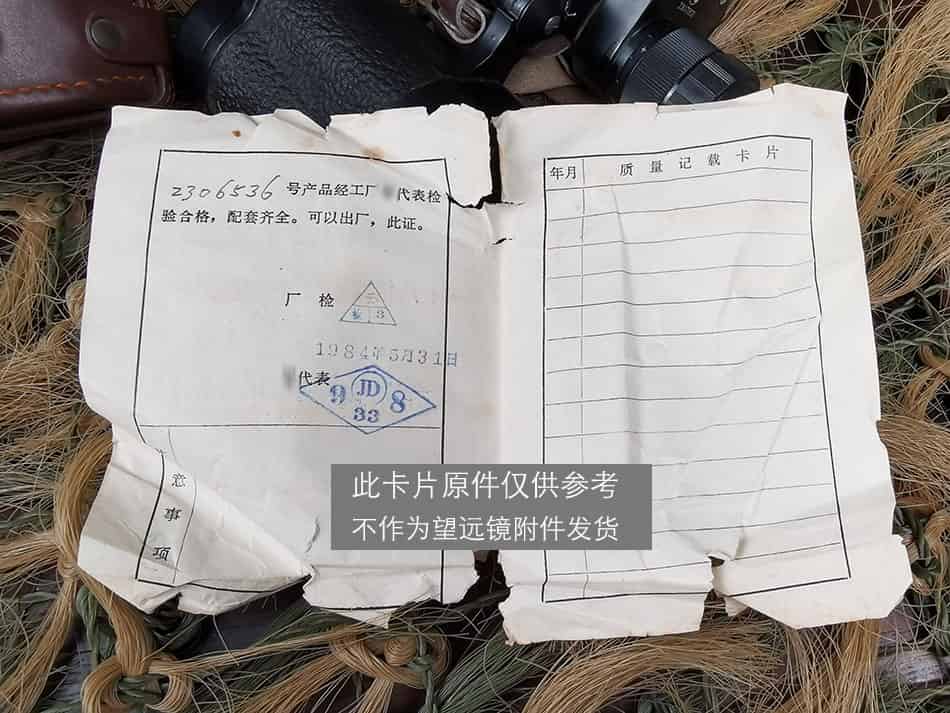 2306536号产品经工厂 代表检
验合格，配套齐全。可以出厂，此证。
厂 检
3
1984年5月31日
代表
9 JD 8
33
意
事
项
年月 质量记载卡片
此卡片原件仅供参考
不作为望远镜附件发货